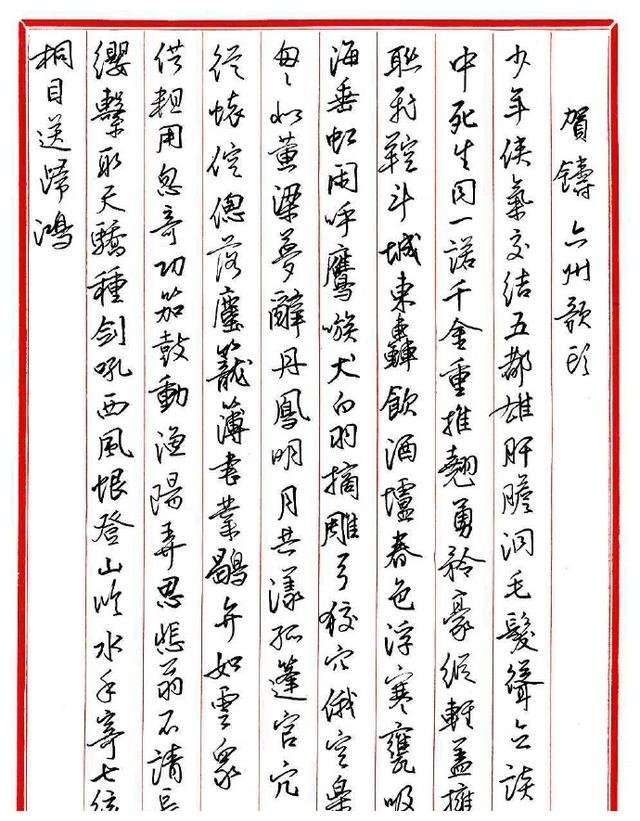 賀鑄 六州歌頭
少年俠氣交結五都雄肝膽洞毛髮聳立談
中死生同一諾千金重推翹勇矜豪縱軽盖擁
聯飛鞚斗城東轟飲酒壚春色浮寒甕吸
海垂虹閑呼鷹嗾犬白羽摘雕弓狡穴俄空樂
匆〻似黄梁夢辭丹鳳明月共漾孤蓬官冗
從懷倥傯落塵籠簿書叢鶡弁如雲衆
供粗用忽奇功笳鼓動漁陽弄思悲翁不請長
纓繫取天驕種剑吼西風恨登山临水手寄七絃
桐目送歸鴻